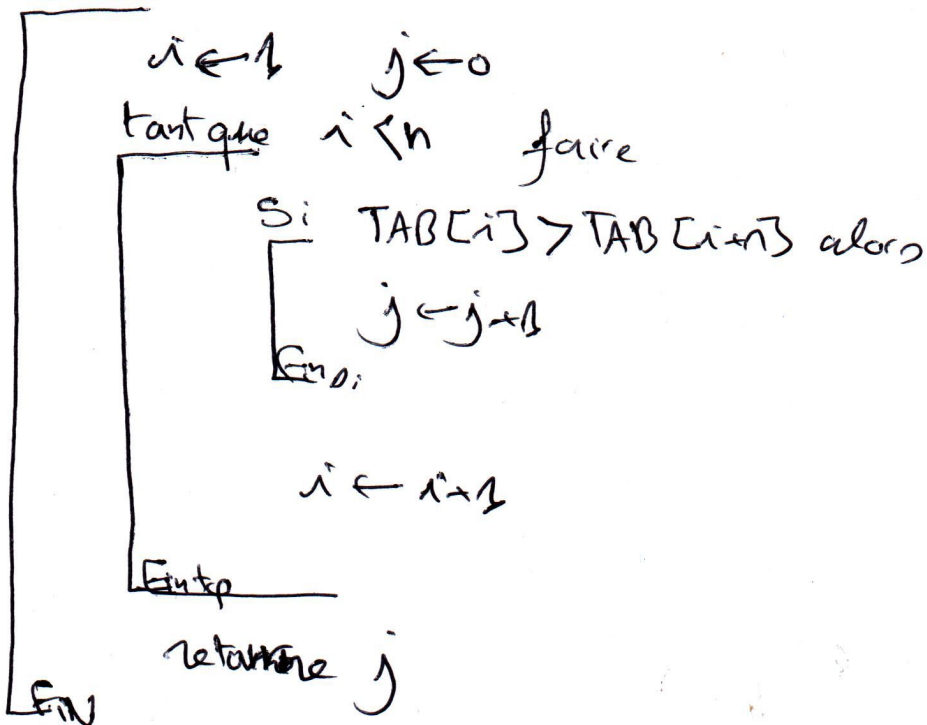 i ← 1 j ← 0
tant que i < n faire
Si TAB[i] > TAB[i+1] alors
j ← j+1
Finsi
i ← i+1
Fintq
retourne j
FIN